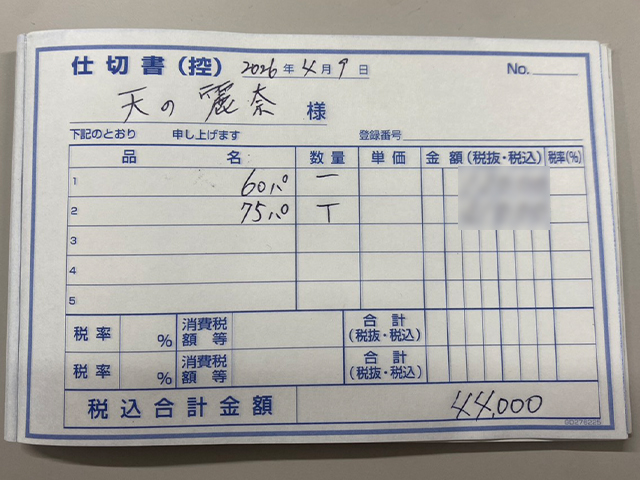 仕切書(控) 2026年4月9日 No.
天の麗奈 様
下記のとおり 申し上げます 登録番号
品名 数量 単価 金額(税抜・税込) 税率(%)
1 60パ 一
2 75パ T
3
4
5
税率 % 消費税額等 合計(税抜・税込)
税率 % 消費税額等 合計(税抜・税込)
税込合計金額 44,000